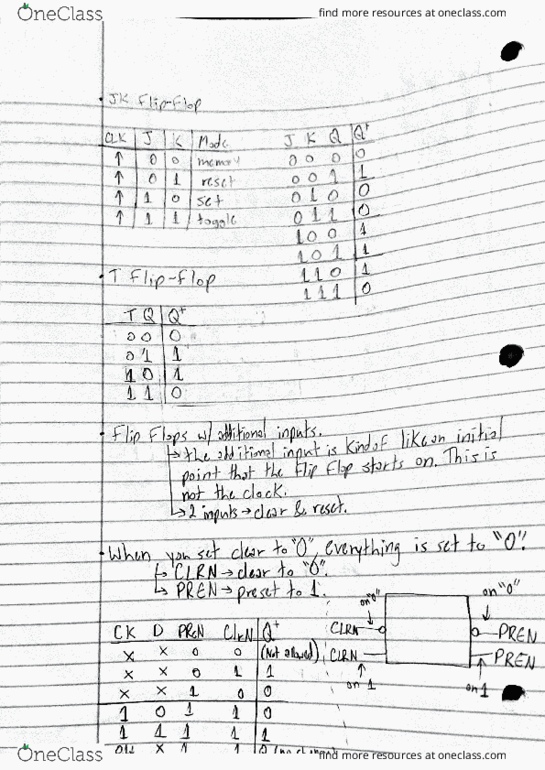 OneClass
find more resources at oneclass.com
• JK Flip-Flop
CLK J K Mode
↑ 0 0 memory
↑ 0 1 reset
↑ 1 0 set
↑ 1 1 toggle
J K Q Q⁺
0 0 0 0
0 0 1 1
0 1 0 0
0 1 1 0
1 0 0 1
1 0 1 1
1 1 0 1
1 1 1 0
• T Flip-Flop
T Q Q⁺
0 0 0
0 1 1
1 0 1
1 1 0
• Flip Flops w/ additional inputs.
↳ the additional input is kind of like an initial
point that the flip flop starts on. This is
not the clock.
↳ 2 inputs → clear & reset.
• When you set clear to "0", everything is set to "0".
↳ CLRN → clear to "0".
↳ PREN → preset to 1.
CK D PREN ClRN Q⁺
x x 0 0 (Not allowed)
x x 0 1 1
x x 1 0 0
1 0 1 1 0
1 1 1 1 1
x 1 1
on "0"
on "0"
CLRN
PREN
CLRN
PREN
on 1
on 1
OneClass
find more resources at oneclass.com